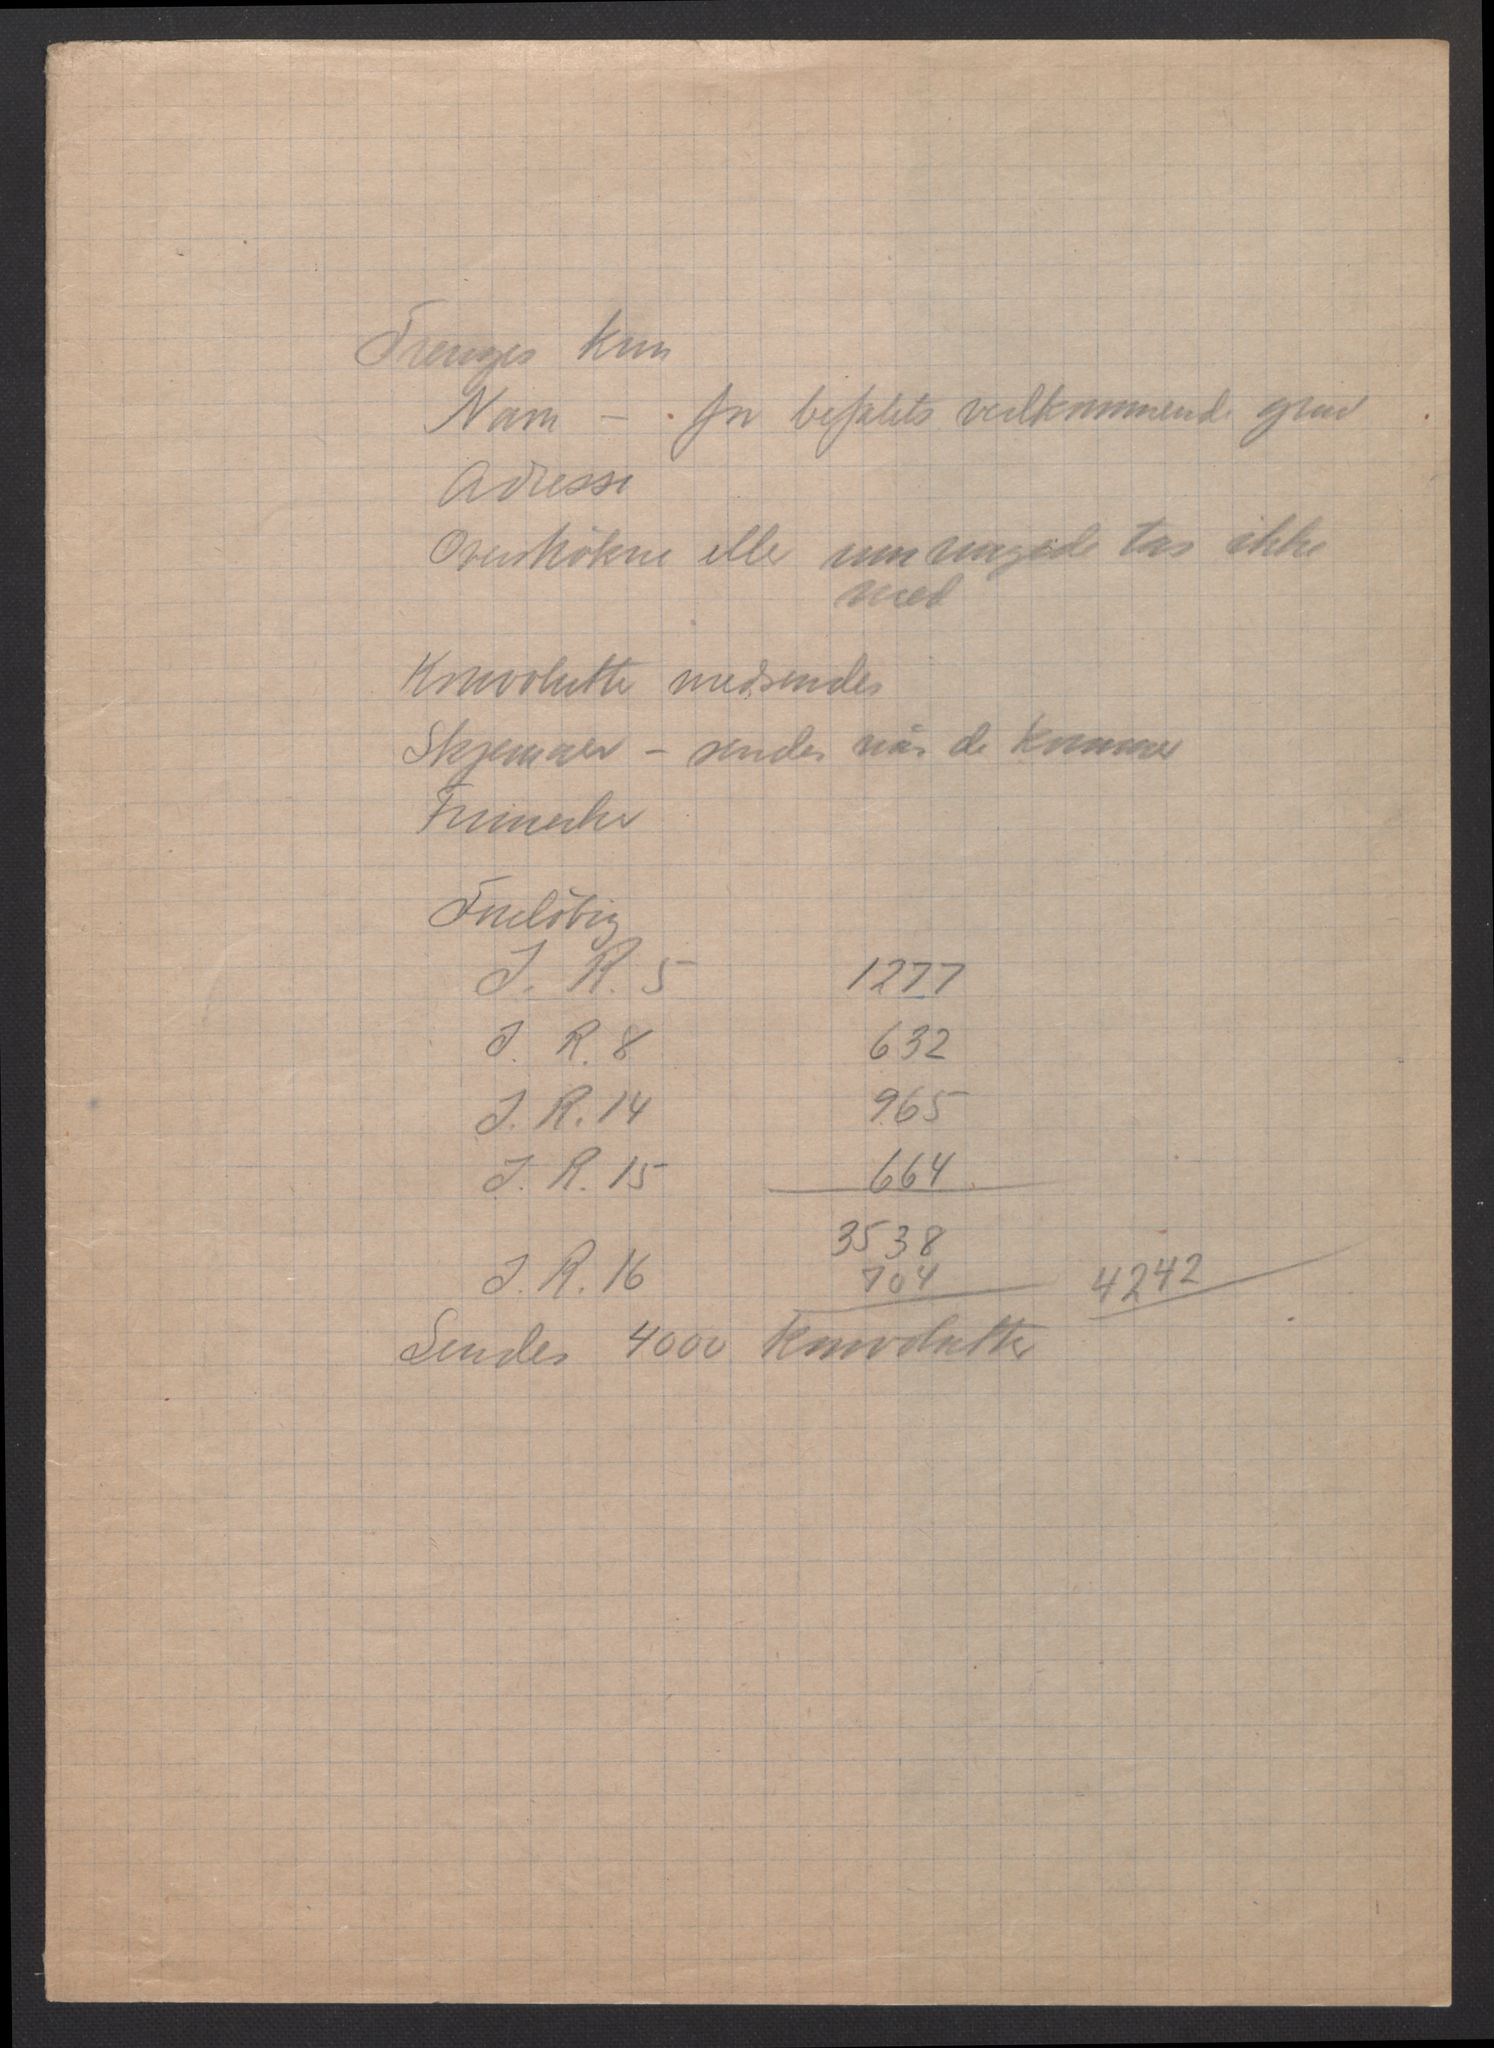 Trenges kun
Navn - for befalets vedkommende grad
Adresse
Overströkne eller unntagede tas ikke
med
Konvolutter medsendes
Skjemaer - sendes når de kommer
Frimerker
Foreløbig
J. R. 5 1277
J. R. 8 632
J. R. 14 965
J. R. 15 664
3538
J. R. 16 704 4242
Sendes 4000 konvolutter